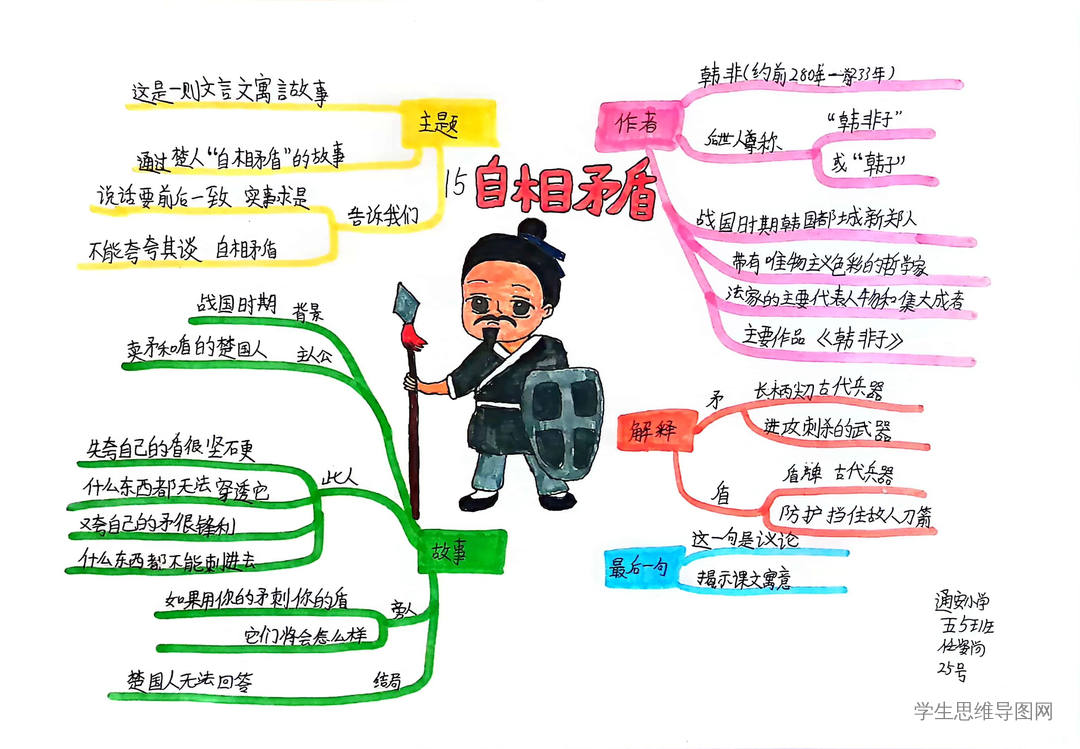 15 自相矛盾
主题
这是一则文言文寓言故事
通过楚人“自相矛盾”的故事
告诉我们
说话要前后一致 实事求是
不能夸夸其谈 自相矛盾
作者
韩非(约前280年—前233年)
后世人尊称
“韩非子”
或“韩子”
战国时期韩国都城新郑人
带有唯物主义色彩的哲学家
法家的主要代表人物和集大成者
主要作品《韩非子》
故事
背景
战国时期
主人公
卖矛和盾的楚国人
此人
先夸自己的盾很坚硬
什么东西都无法穿透它
又夸自己的矛很锋利
什么东西都不能刺进去
旁人
如果用你的矛刺你的盾
它们将会怎么样
结局
楚国人无法回答
解释
矛
长柄尖刀 古代兵器
进攻刺杀的武器
盾
盾牌 古代兵器
防护 挡住敌人刀箭
最后一句
这一句是议论
揭示课文寓意
通安小学
五5班
25号
学生思维导图网